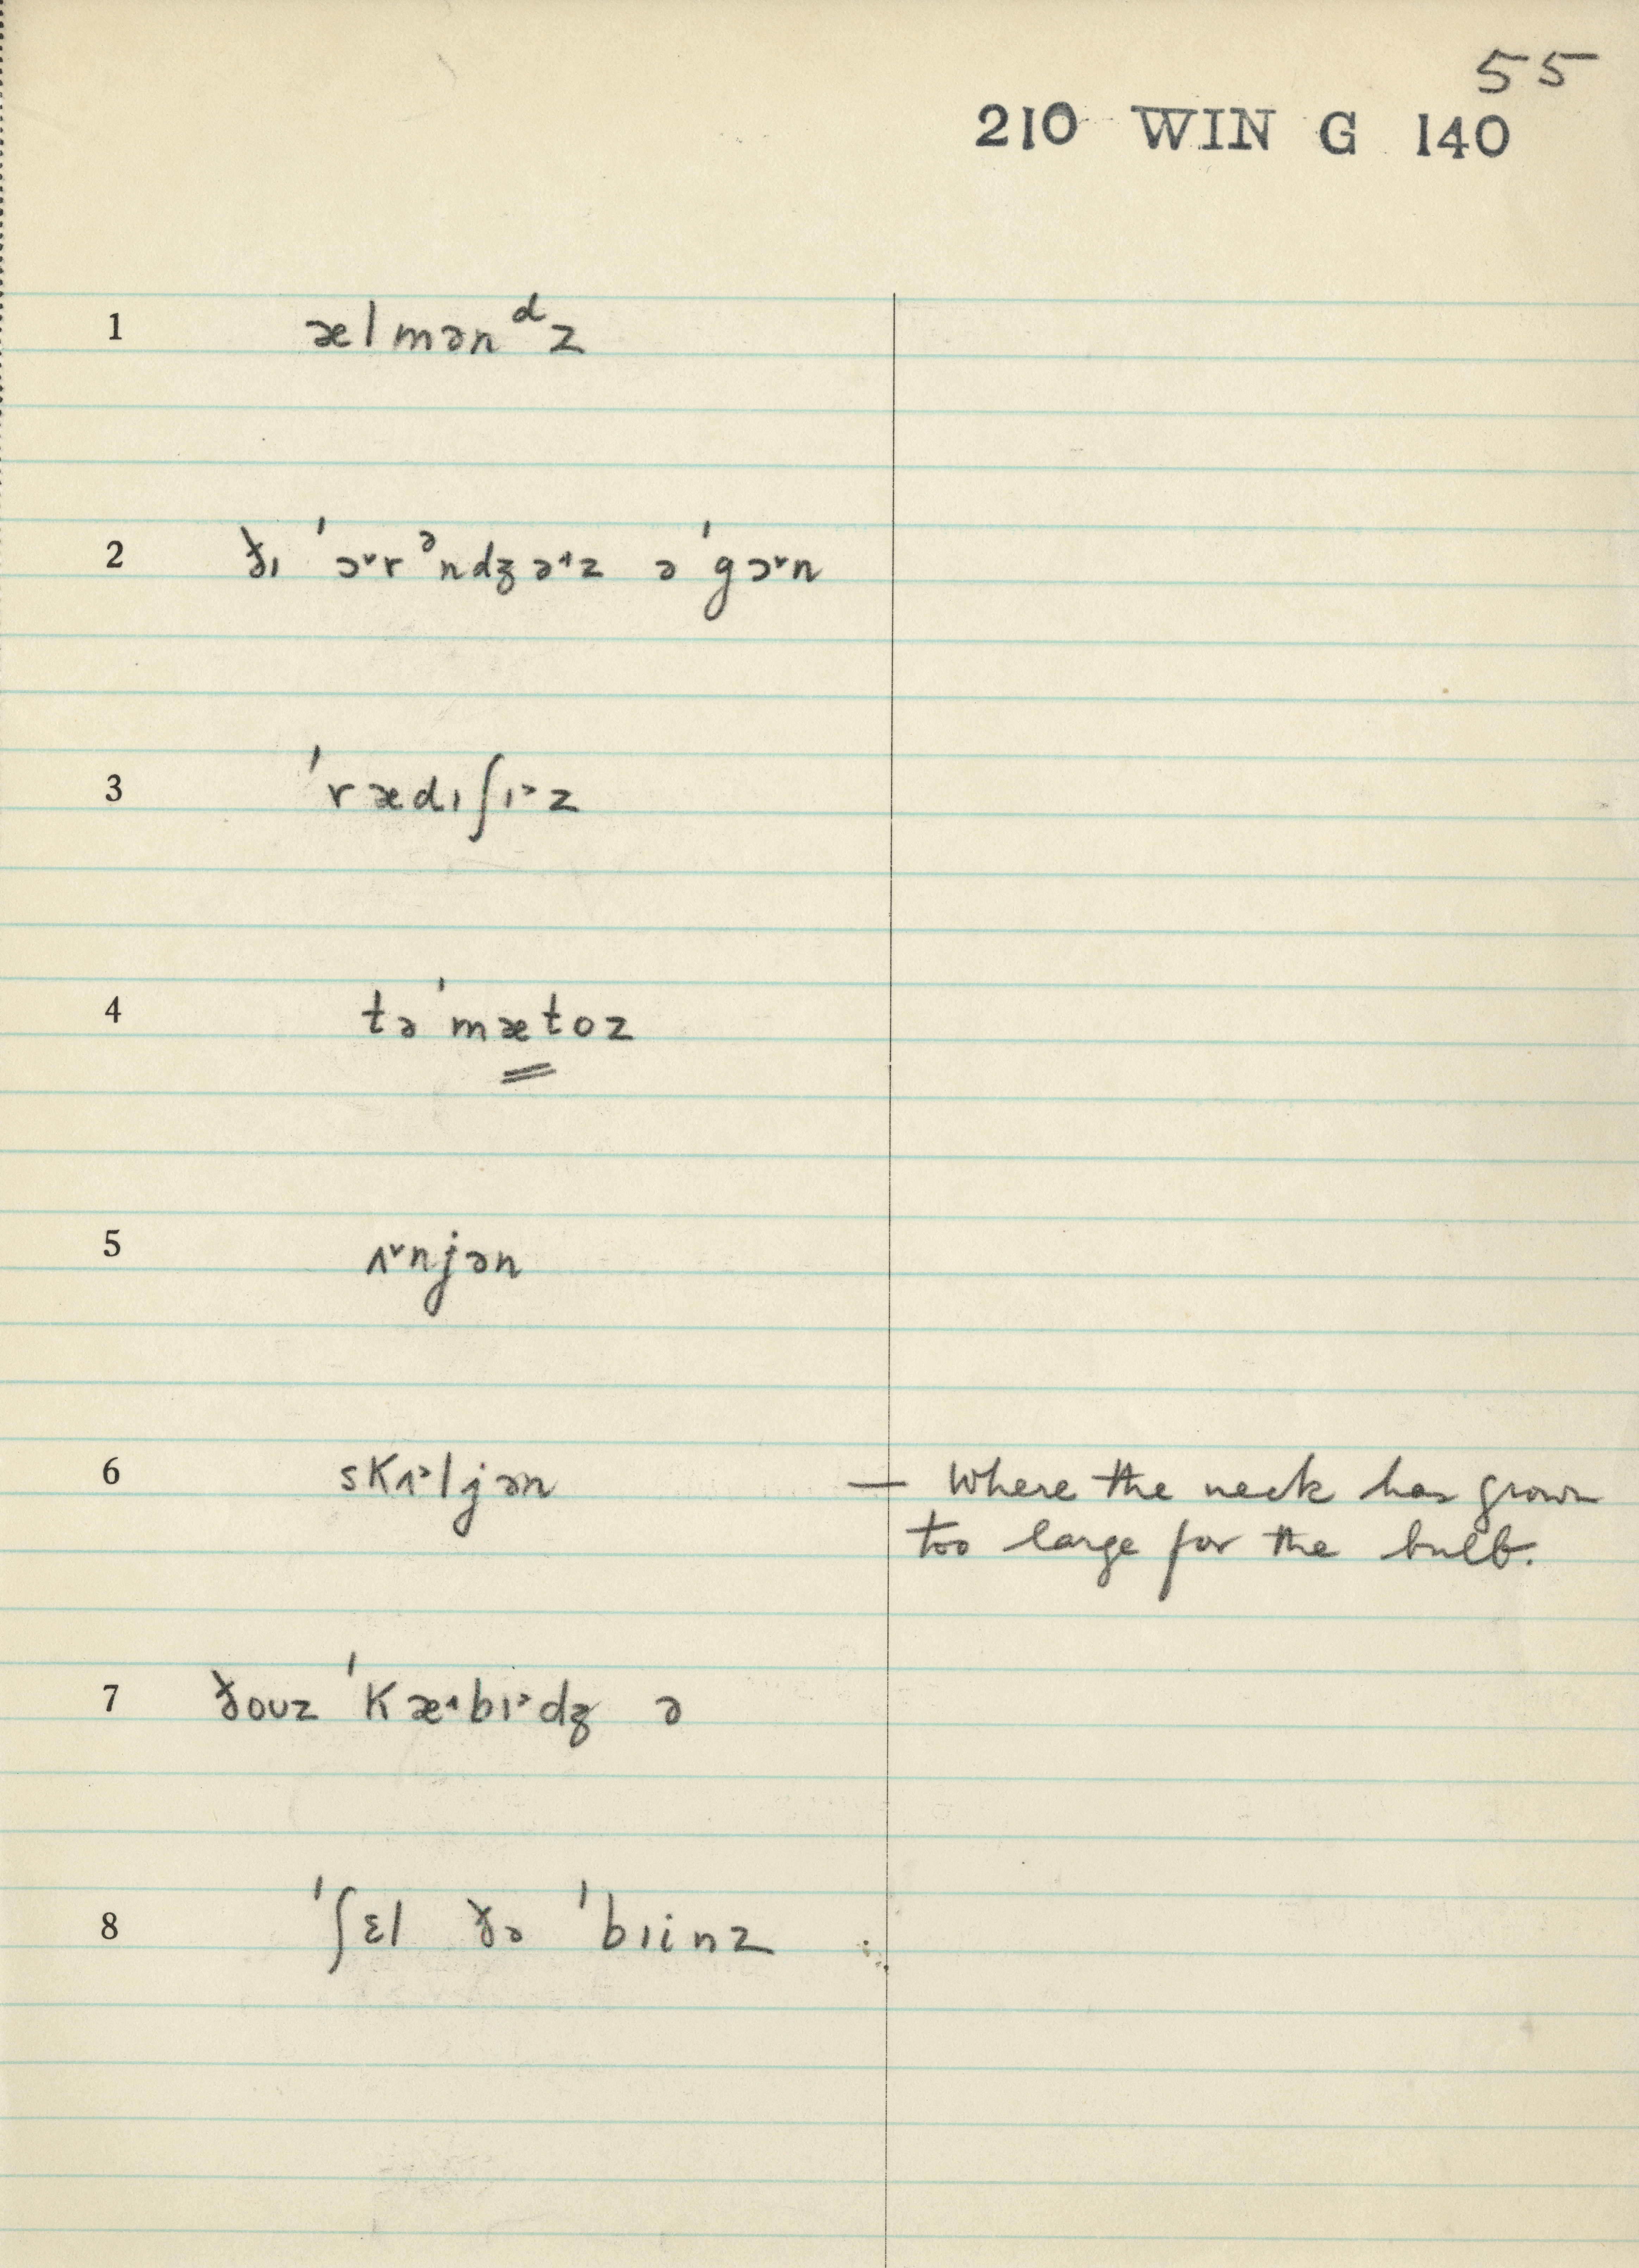 55
210 WIN G 140
1 ælmənᵈz
2 ðɪ ˈɔ˅rᵊndʒə˖z əˈgɔ˅n
3 ˈrædɪʃɪ˃z
4 təˈmætoz
5 ʌ˅njən
6 skʌ˃ljən — Where the neck has grown
too large for the bulb.
7 ðouz ˈkæ˄bɪ˃dʒ ə
8 ˈʃɛl ðə ˈbɪinz